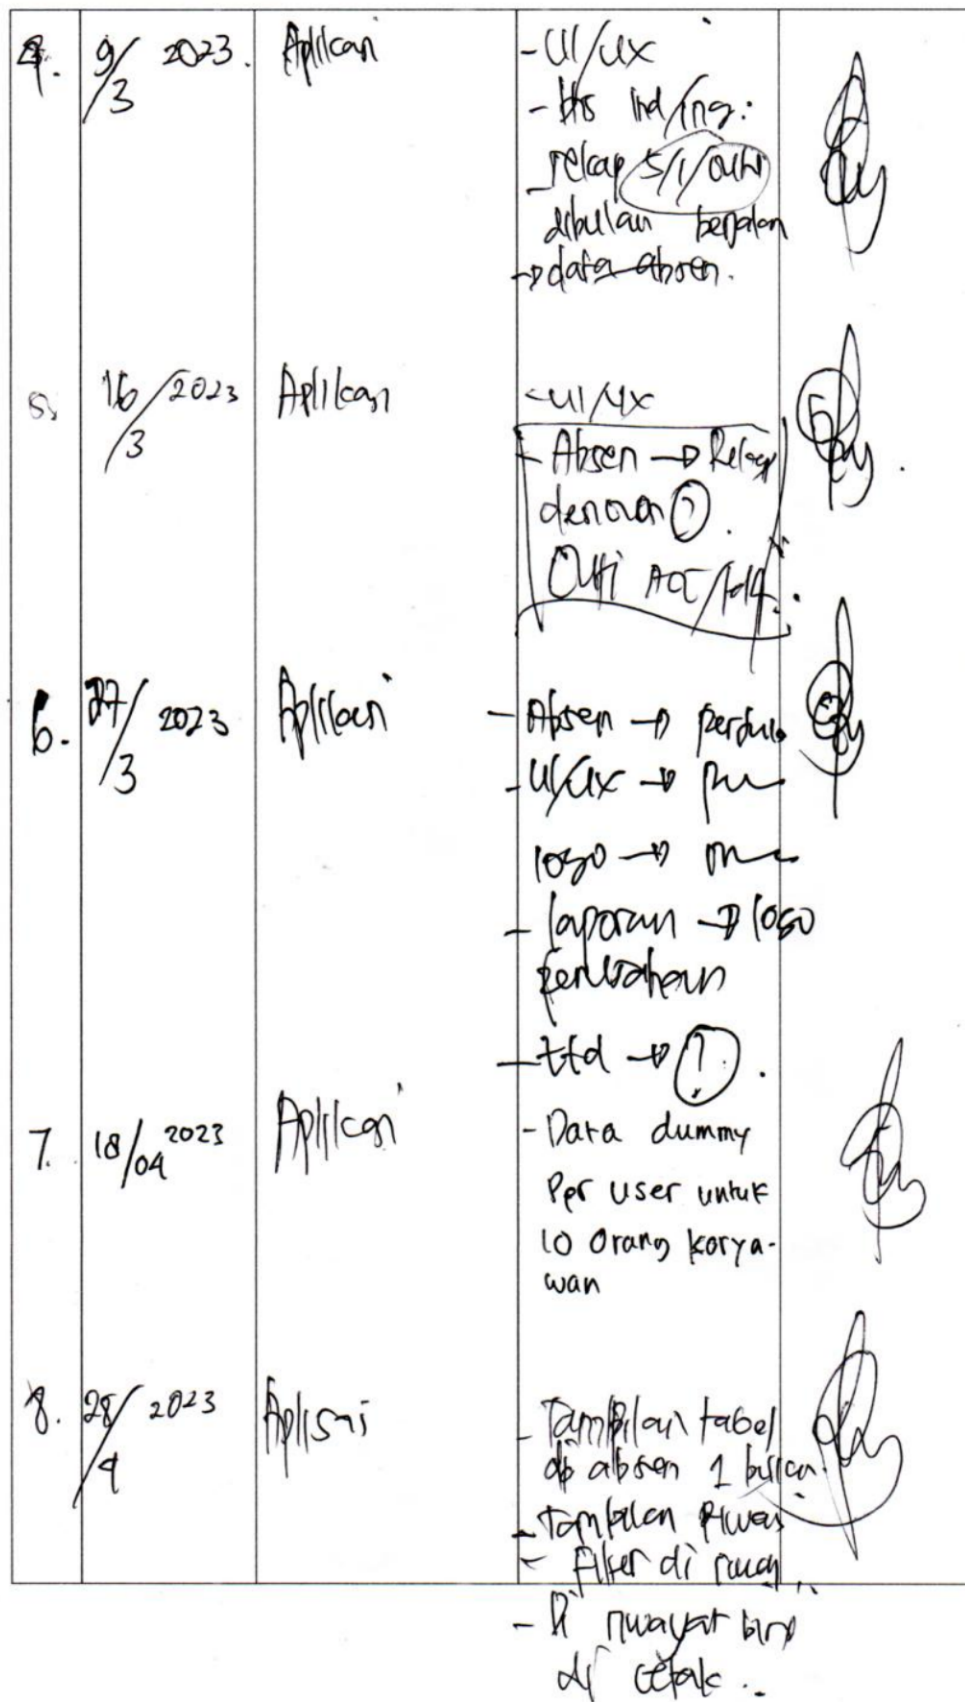 4. 9/3 2023. Aplikasi - UI/UX
- bhs Ind/ing:
- rekap S/I/cuti
dibulan berjalan
→ data absen.
5. 16/3 2023 Aplikasi - UI/UX
- Absen → Rekap
dengan ?.
Cuti ACC/
6. 27/3 2023 Aplikasi - Absen →
- UI/UX →
logo →
- laporan → logo
perusahaan
- ttd → ?.
7. 18/04 2023 Aplikasi - Data dummy
Per user untuk
10 orang karya-
wan
8. 28/4 2023 Aplikasi - Tampilan tabel
absen 1 bulan.
- Tampilan
- Filter di
- Di riwayat bisa
di cetak..